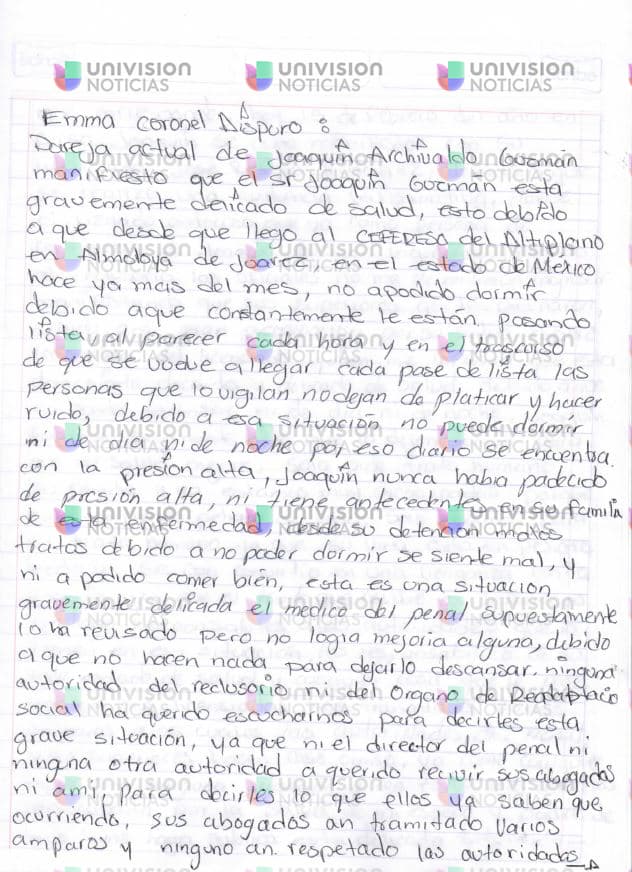 UNIVISION NOTICIAS UNIVISION NOTICIAS UNIVISION NOTICIAS
Emma coronel Aispuro :
Pareja actual de Joaquín Archivaldo Guzmán
manifiesto que el sr Joaquín Guzmán esta
gravemente delicado de salud, esto debido
a que desde que llego al CEFERESO del Altiplano
en Almoloya de Juarez, en el estado de México
hace ya mas del mes, no a podido dormir
debido aque constantemente le están, pasando
lista, al parecer cada hora y en el
de que se vuelve a llegar cada pase de lista las
Personas que lo vigilan no dejan de platicar y hacer
ruido, debido a esa situación no puede dormir
ni de dia ni de noche por eso diario se encuentra
con la presión alta, Joaquín nunca habia padecido
de presión alta, ni tiene antecedentes en su familia
de esta enfermedad, desde su detencion malos
tratos debido a no poder dormir se siente mal, y
ni a podido comer bién, esta es una situacion
gravemente delicada el medico del penal supuestamente
lo ha revisado pero no logra mejoria alguna, debido
a que no hacen nada para dejarlo descansar. ninguna
autoridad del reclusorio ni del Organo de
social ha querido escucharnos para decirles esta
grave situación, ya que ni el director del penal ni
ninguna otra autoridad a querido recivir sus abogados
ni ami, para decirles lo que ellos ya saben que
ocurriendo, sus abogados an tramitado varios
amparos y ninguno an respetado las autoridades